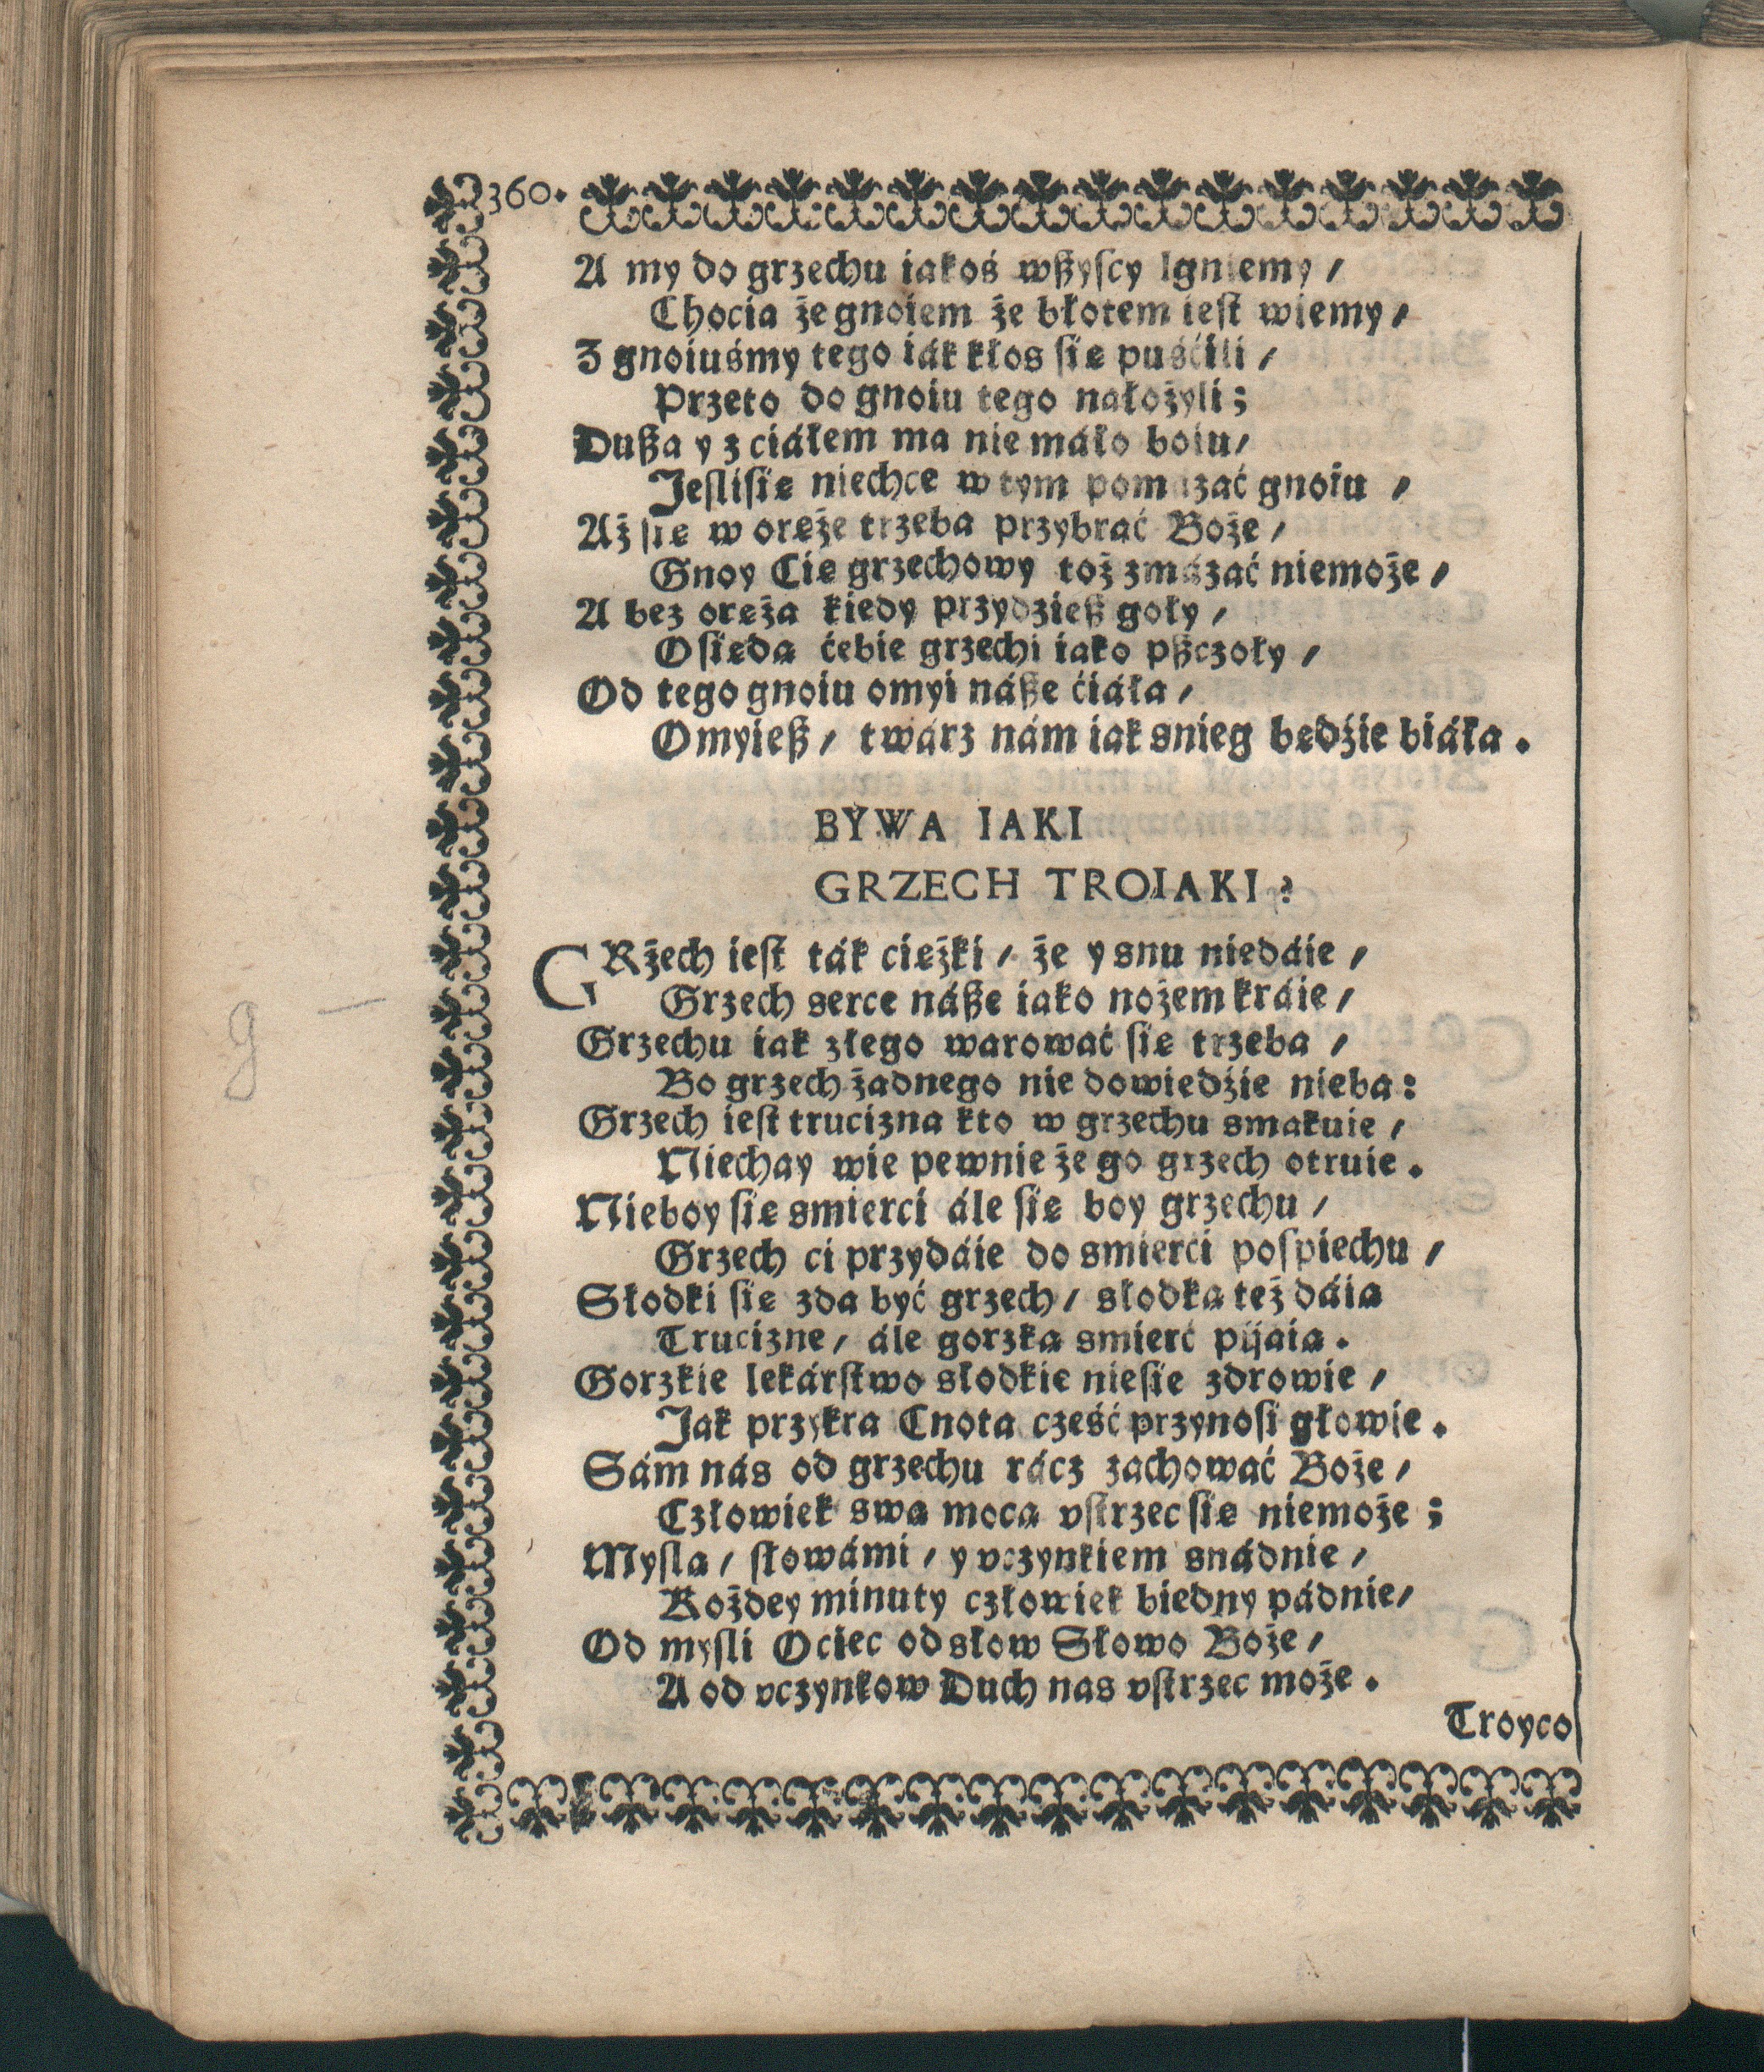 360.
A my do grzechu iakoś wßyſcy lgniemy /
Chocia że gnoiem że błotem ieſt wiemy /
Z gnoiuśmy tego iák kłos ſię puśćili /
Przeto do gnoiu tego nałożyli ;
Dußa y z ciáłem ma nie máło boiu /
Jeſliſię niechce w tym pomazać gnoiu /
Aż ſię w oręże trzeba przybrać Boże /
Gnoy Cię grzechowy toż zmázać niemoże /
A bez oręża kiedy przydzieß goły /
Oſiędą ćebie grzechi iako pßczoły /
Od tego gnoiu omyi náße ćiáła /
Omyieß / twárz nám iak snieg będźie biáła .
BYWA IAKI
GRZECH TROIAKI ?
GRżech ieſt ták ciężki / że y snu niedáie /
Grzech serce náße iako nożem kráie /
Grzechu iak złego warować ſię trzeba /
Bo grzech żadnego nie dowiedźie nieba :
Grzech ieſt trucizną kto w grzechu smakuie /
Niechay wie pewnie że go grzech otruie .
Nieboy ſię smierci ále ſię boy grzechu /
Grzech ci przydáie do smierci poſpiechu /
Słodki ſię zda być grzech / słodką też dáią
Truciznę / ále gorzką smierć pijaią .
Gorzkie lekárſtwo słodkie nieſie zdrowie /
Jak przykra Cnota cześć przynoſi głowie .
Sám nás od grzechu rácz zachować Boże /
Człowiek swą mocą vſtrzec ſię niemoże ;
Myſlą / ſłowámi / y vczynkiem snádnie /
Każdey minuty człowiek biedny pádnie /
Od myſli Ociec od słow Słowo Boże /
A od vczynkow Duch nas vſtrzec może .
Troyco
g -